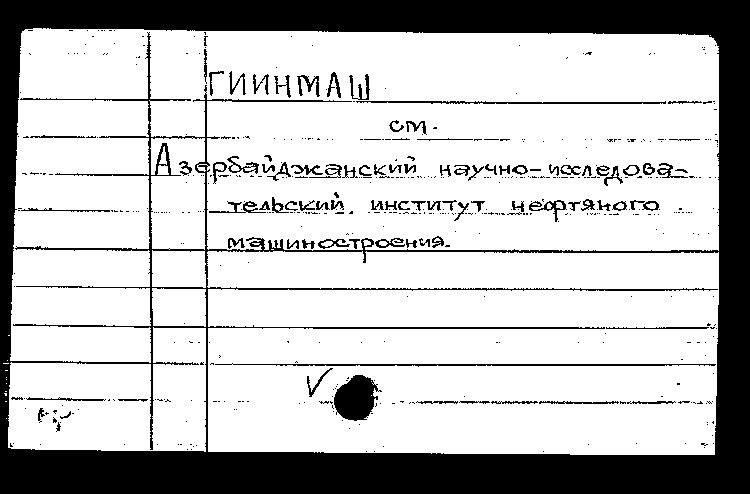 ГИИНМАШ
см.
Азербайджанский научно-исследова-
тельский институт нефтяного
машиностроения.